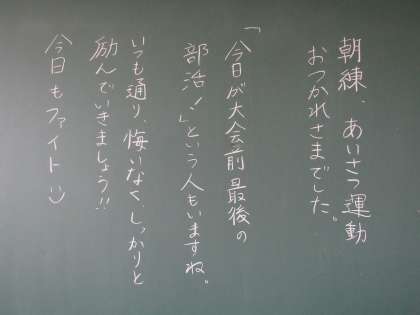 朝練、あいさつ運動
おつかれさまでした。
「今日が大会前最後の
部活!」という人もいますね。
いつも通り、悔いなく、しっかりと
励んでいきましょう!!
今日もファイト:)